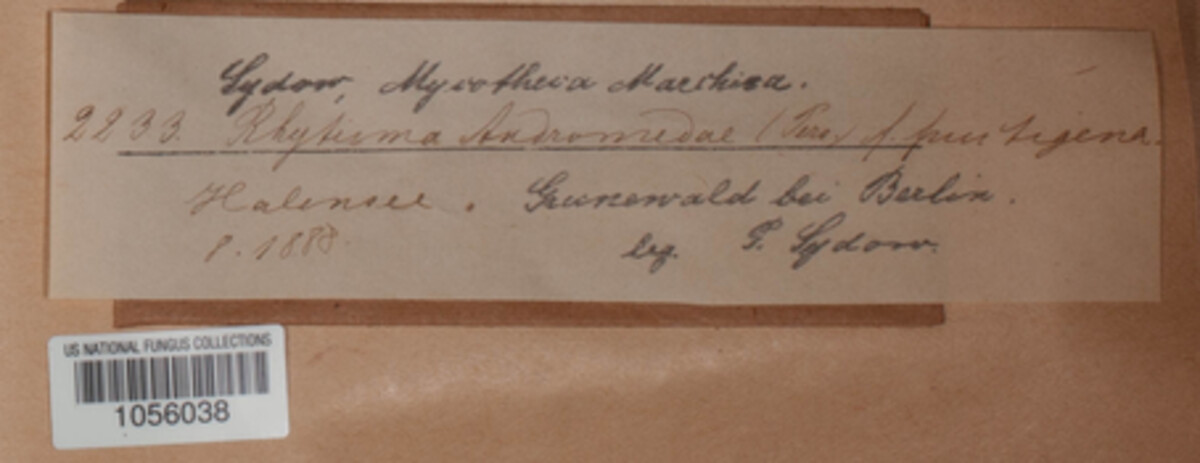 Sydow, Mycotheca Marchica.
2233. Rhytisma Andromedae (Pers.) f.
Halensee. Grunewald bei Berlin.
8. 1888.
leg. P. Sydow.
US NATIONAL FUNGUS COLLECTIONS
1056038